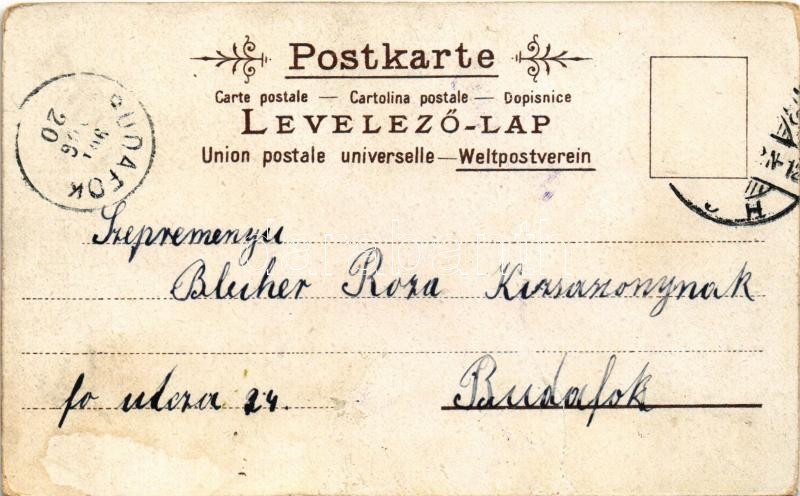 Postkarte
Carte postale — Cartolina postale — Dopisnice
LEVELEZŐ-LAP
Union postale universelle — Weltpostverein
BUDAFOK
20
Szepremenyu
Blucher Roza Kizsaszonynak
fo utcza 24.
Budafok